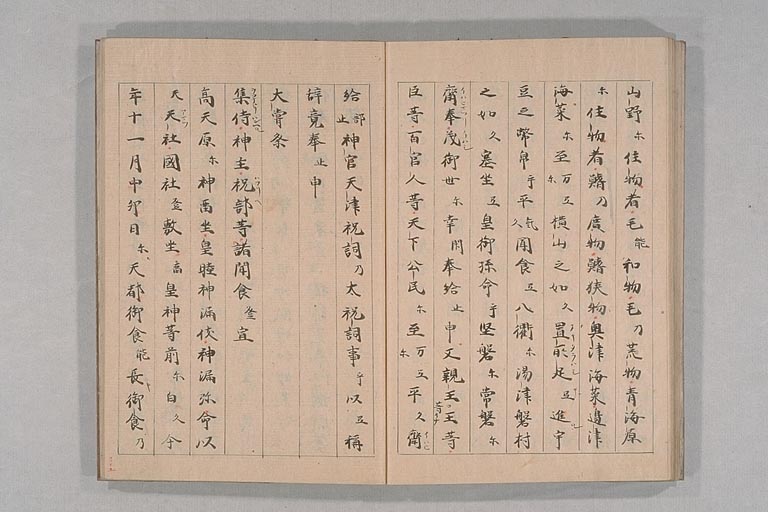 山野尓住物者毛能和物毛乃荒物青海原
尓住物者鰭乃廣物鰭狭物奥津海菜邉津
海菜尓至万弖尓横山之如久置所足弖進宇
豆之幣帛乎平久聞食弖八衢尓湯津磐村
之如久塞坐弖皇御孫命乎堅磐尓常磐尓
齋奉茂御世尓幸閇奉給止申又親王王等
臣等百官人等天下公民尓至万弖尓平久齋
給部止神官天津祝詞乃太祝詞事乎以弖稱
辞竟奉止申
大甞祭
集侍神主祝部等諸聞食登宣
高天原尓神留坐皇睦神漏伎神漏弥命以
天天社國社登敷坐留皇神等前尓白久今
年十一月中卯日尓天都御食能長御食乃